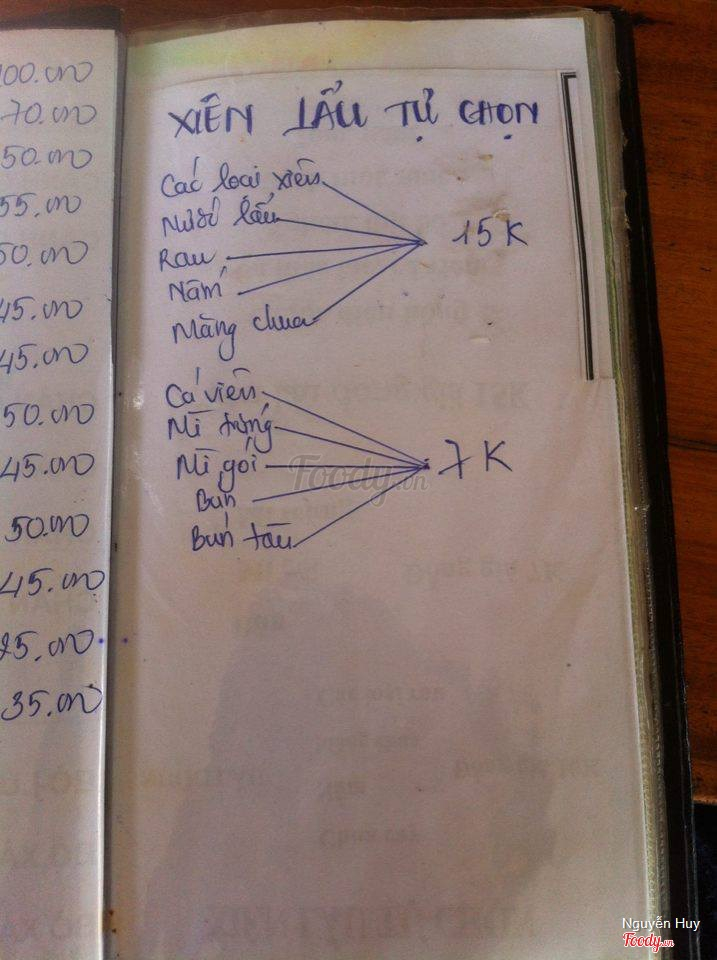 100.000
70.000
50.000
55.000
50.000
45.000
45.000
50.000
45.000
50.000
45.000
25.000
35.000
XIÊN LẨU TỰ CHỌN
Các loại xiên
Nước lẩu
Rau
Nấm
Măng chua
15K
Cá viên
Mì trứng
Mì gói
Bún
Bún tàu
7K
Foody.vn
Nguyễn Huy
Foody.vn